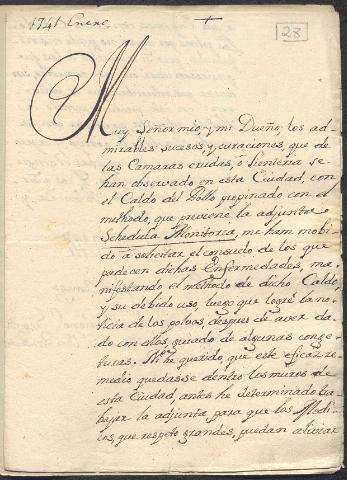 1741 Enero
28
Muy Señor mio, y mi Dueño, los ad-
mirables sucesos, y curaciones, que de
las Camaras crudas, ò lienteria se
han observado en esta Ciudad, con
el Caldo del Pollo propinado con el
methodo, que previene la adjunta
Schedula Monitoria, me han mobi-
do à solicitar el consuelo de los que
padecen dichas Enfermedades, ma-
nifestando el methodo de dicho Caldo,
y su debido uso, luego que logrè la no-
ticia de los polvos, despues de aver da-
do con ellos, guiado de algunas conge-
turas. No he querido, que este eficaz re-
medio quedasse dentro los muros de
esta Ciudad, antes he determinado tra-
bajar la adjunta para que los Medi-
cos, que respeto grandes, puedan aliviar